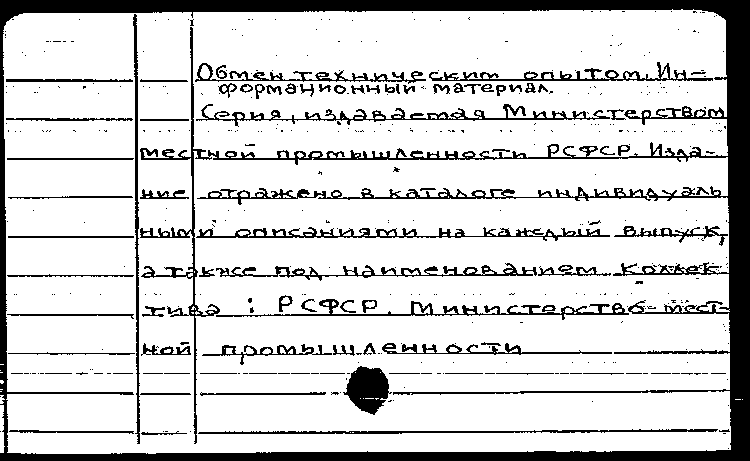 Обмен техническим опытом. Ин-
формационный материал.
Серия, издаваемая Министерством
местной промышленности РСФСР. Изда-
ние отражено в каталоге индивидуаль
ными описаниями на каждый выпуск,
а также под наименованием коллек
тива : РСФСР. Министерство мест-
ной промышленности